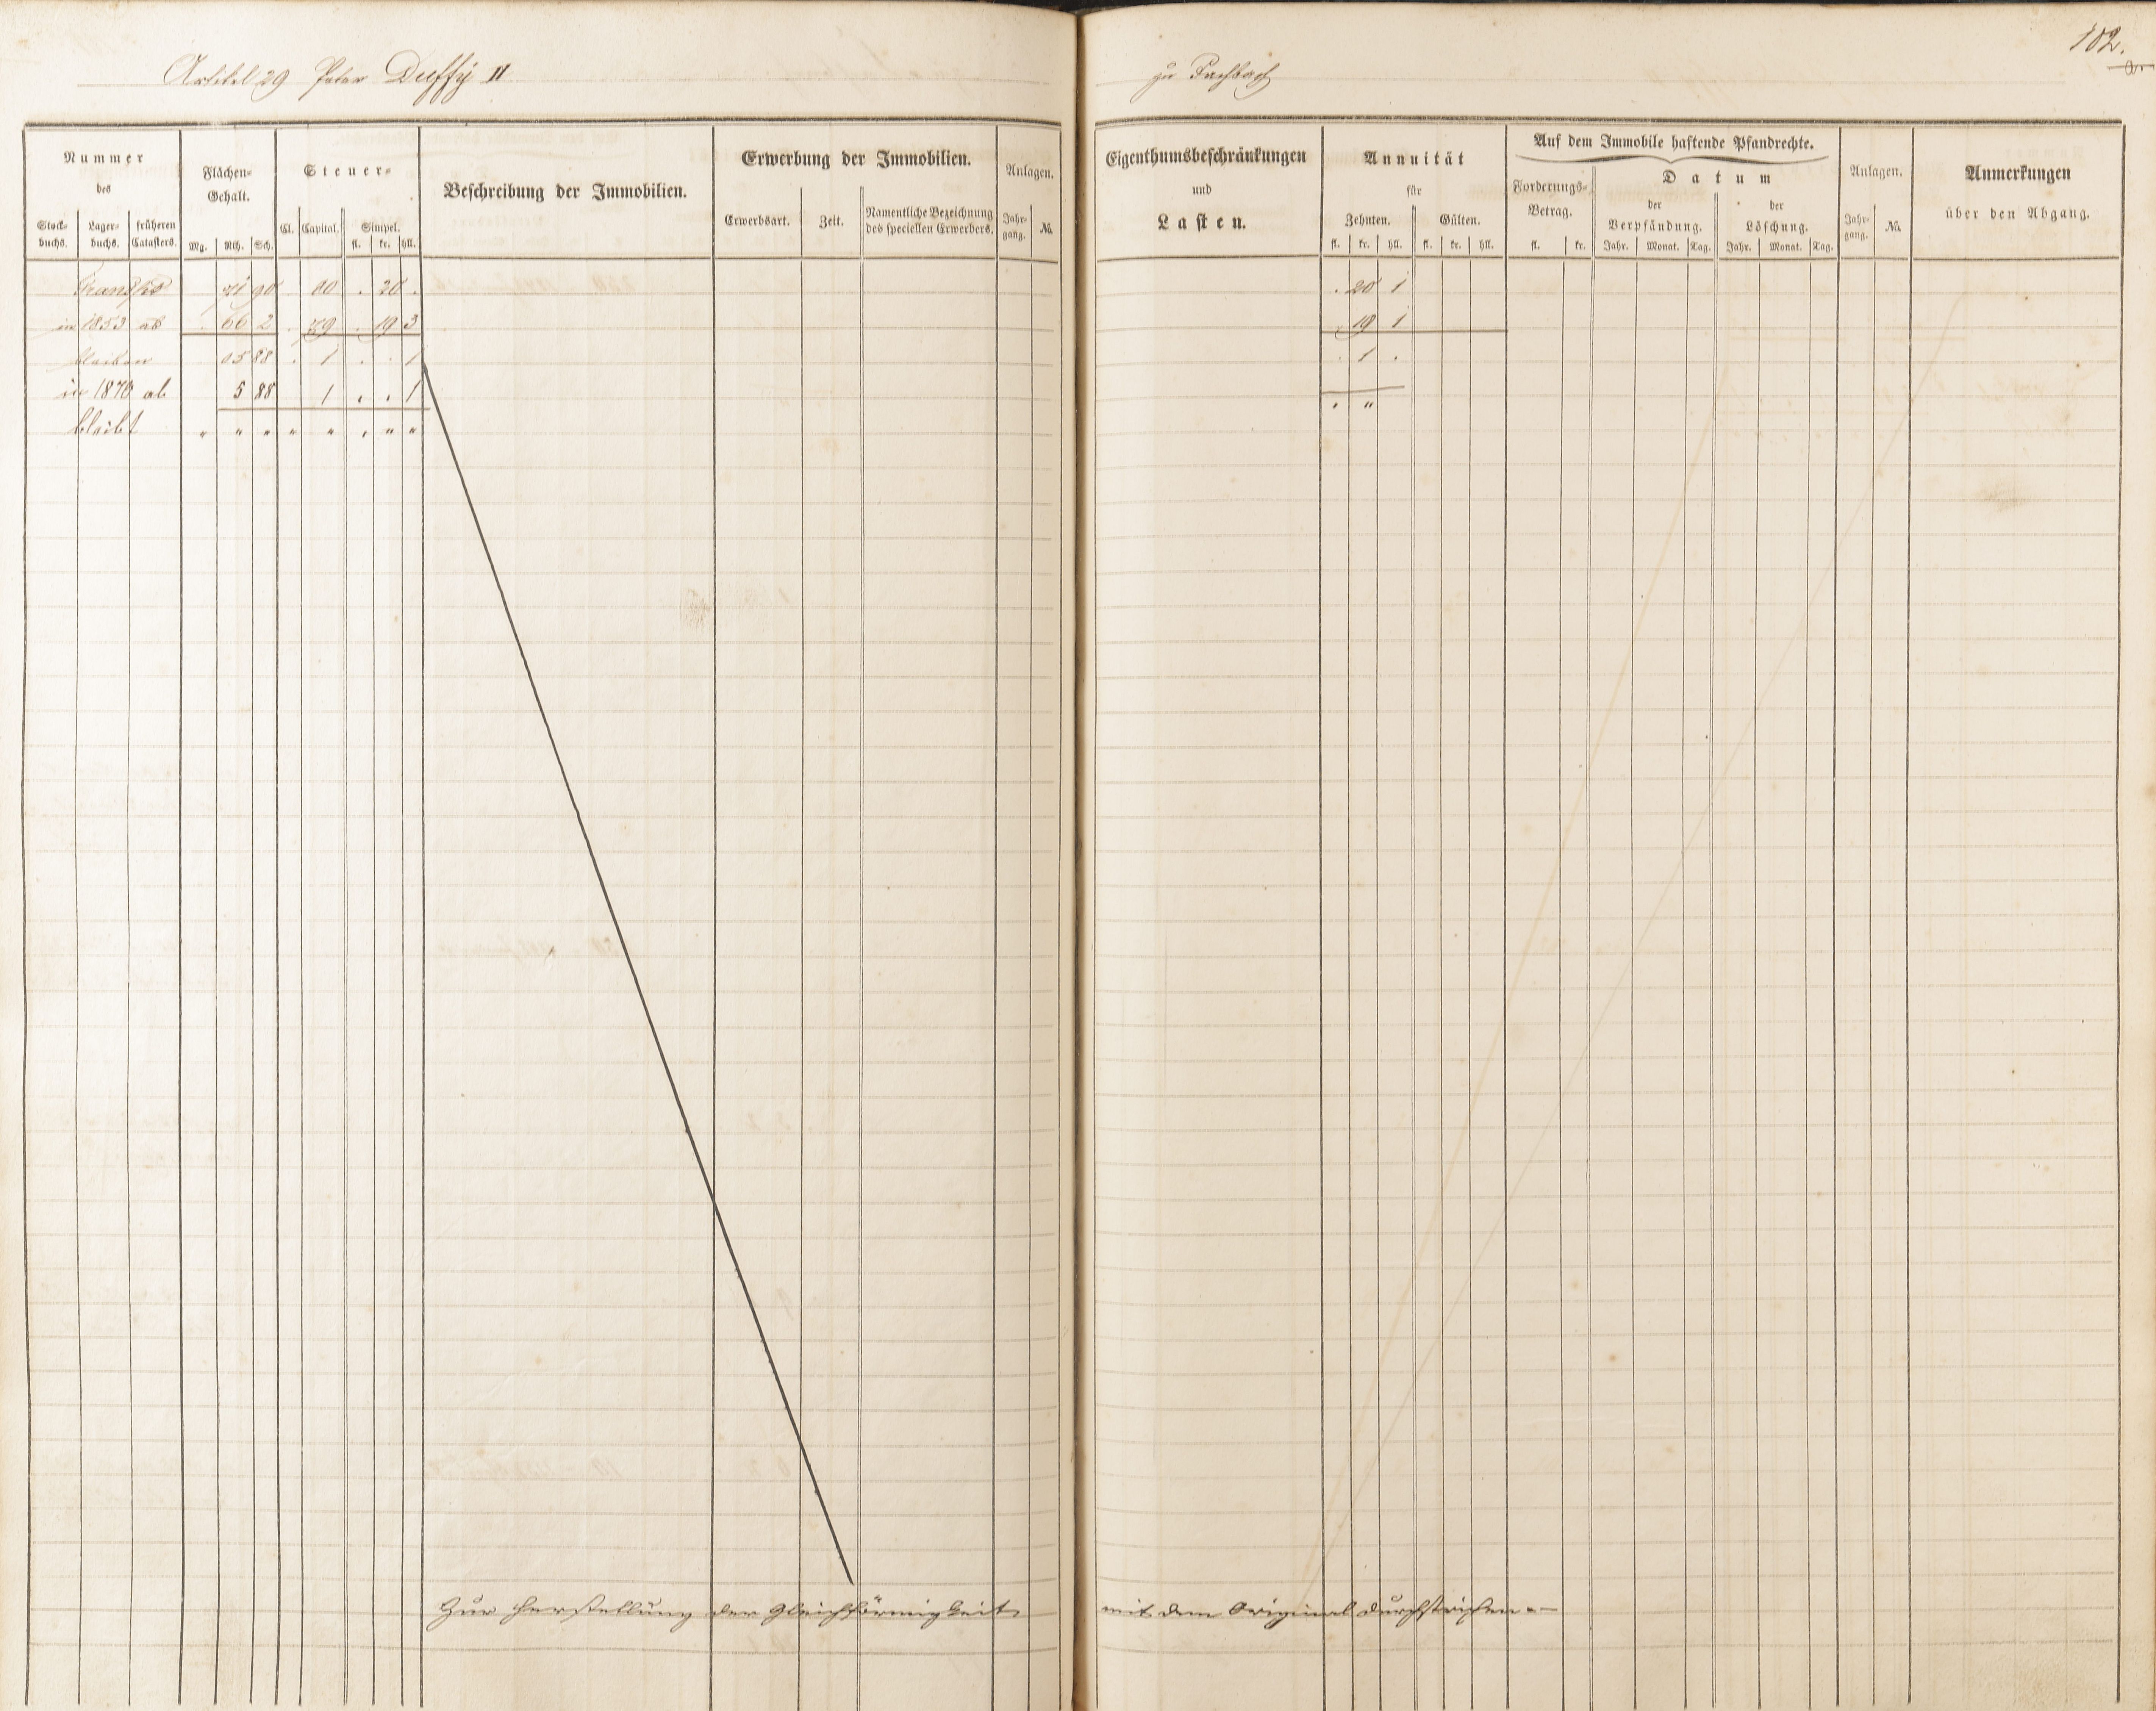 102.
a.
Artikel 29 Peter Duffÿ II
zu Fachbach
Nummer
des
Stock-buchs. Lager-buchs. früheren Catasters.
Flächen-Gehalt.
Mg. Rth. Sch.
Steuer-
Cl. Capital. Simpel.
fl. kr. hll.
Beschreibung der Immobilien.
Erwerbung der Immobilien.
Erwerbsart. Zeit. Namentliche Bezeichnung des speciellen Erwerbers.
Anlagen.
Jahr-gang. №.
Eigenthumsbeschränkungen
und
Lasten.
Annuität
für
Zehnten. Gülten.
fl. kr. hll. fl. kr. hll.
Auf dem Immobile haftende Pfandrechte.
Forderungs-Betrag.
fl. kr.
Datum
der Verpfändung. der Löschung.
Jahr. Monat. Tag. Jahr. Monat. Tag.
Anlagen.
Jahr-gang. №.
Anmerkungen
über den Abgang.
Transpt 71 90 80 . 20 . . 20 1
in 1853 ab . 66 2 . 79 . 19 3 19 1
bleiben 05 88 . 1 . . 1 . 1 .
in 1870 ab 5 88 1 . . 1
bleibt " " " " " . " " . "
Zur Herstellung der Gleichförmigkeit mit dem Original durchstrichen.—